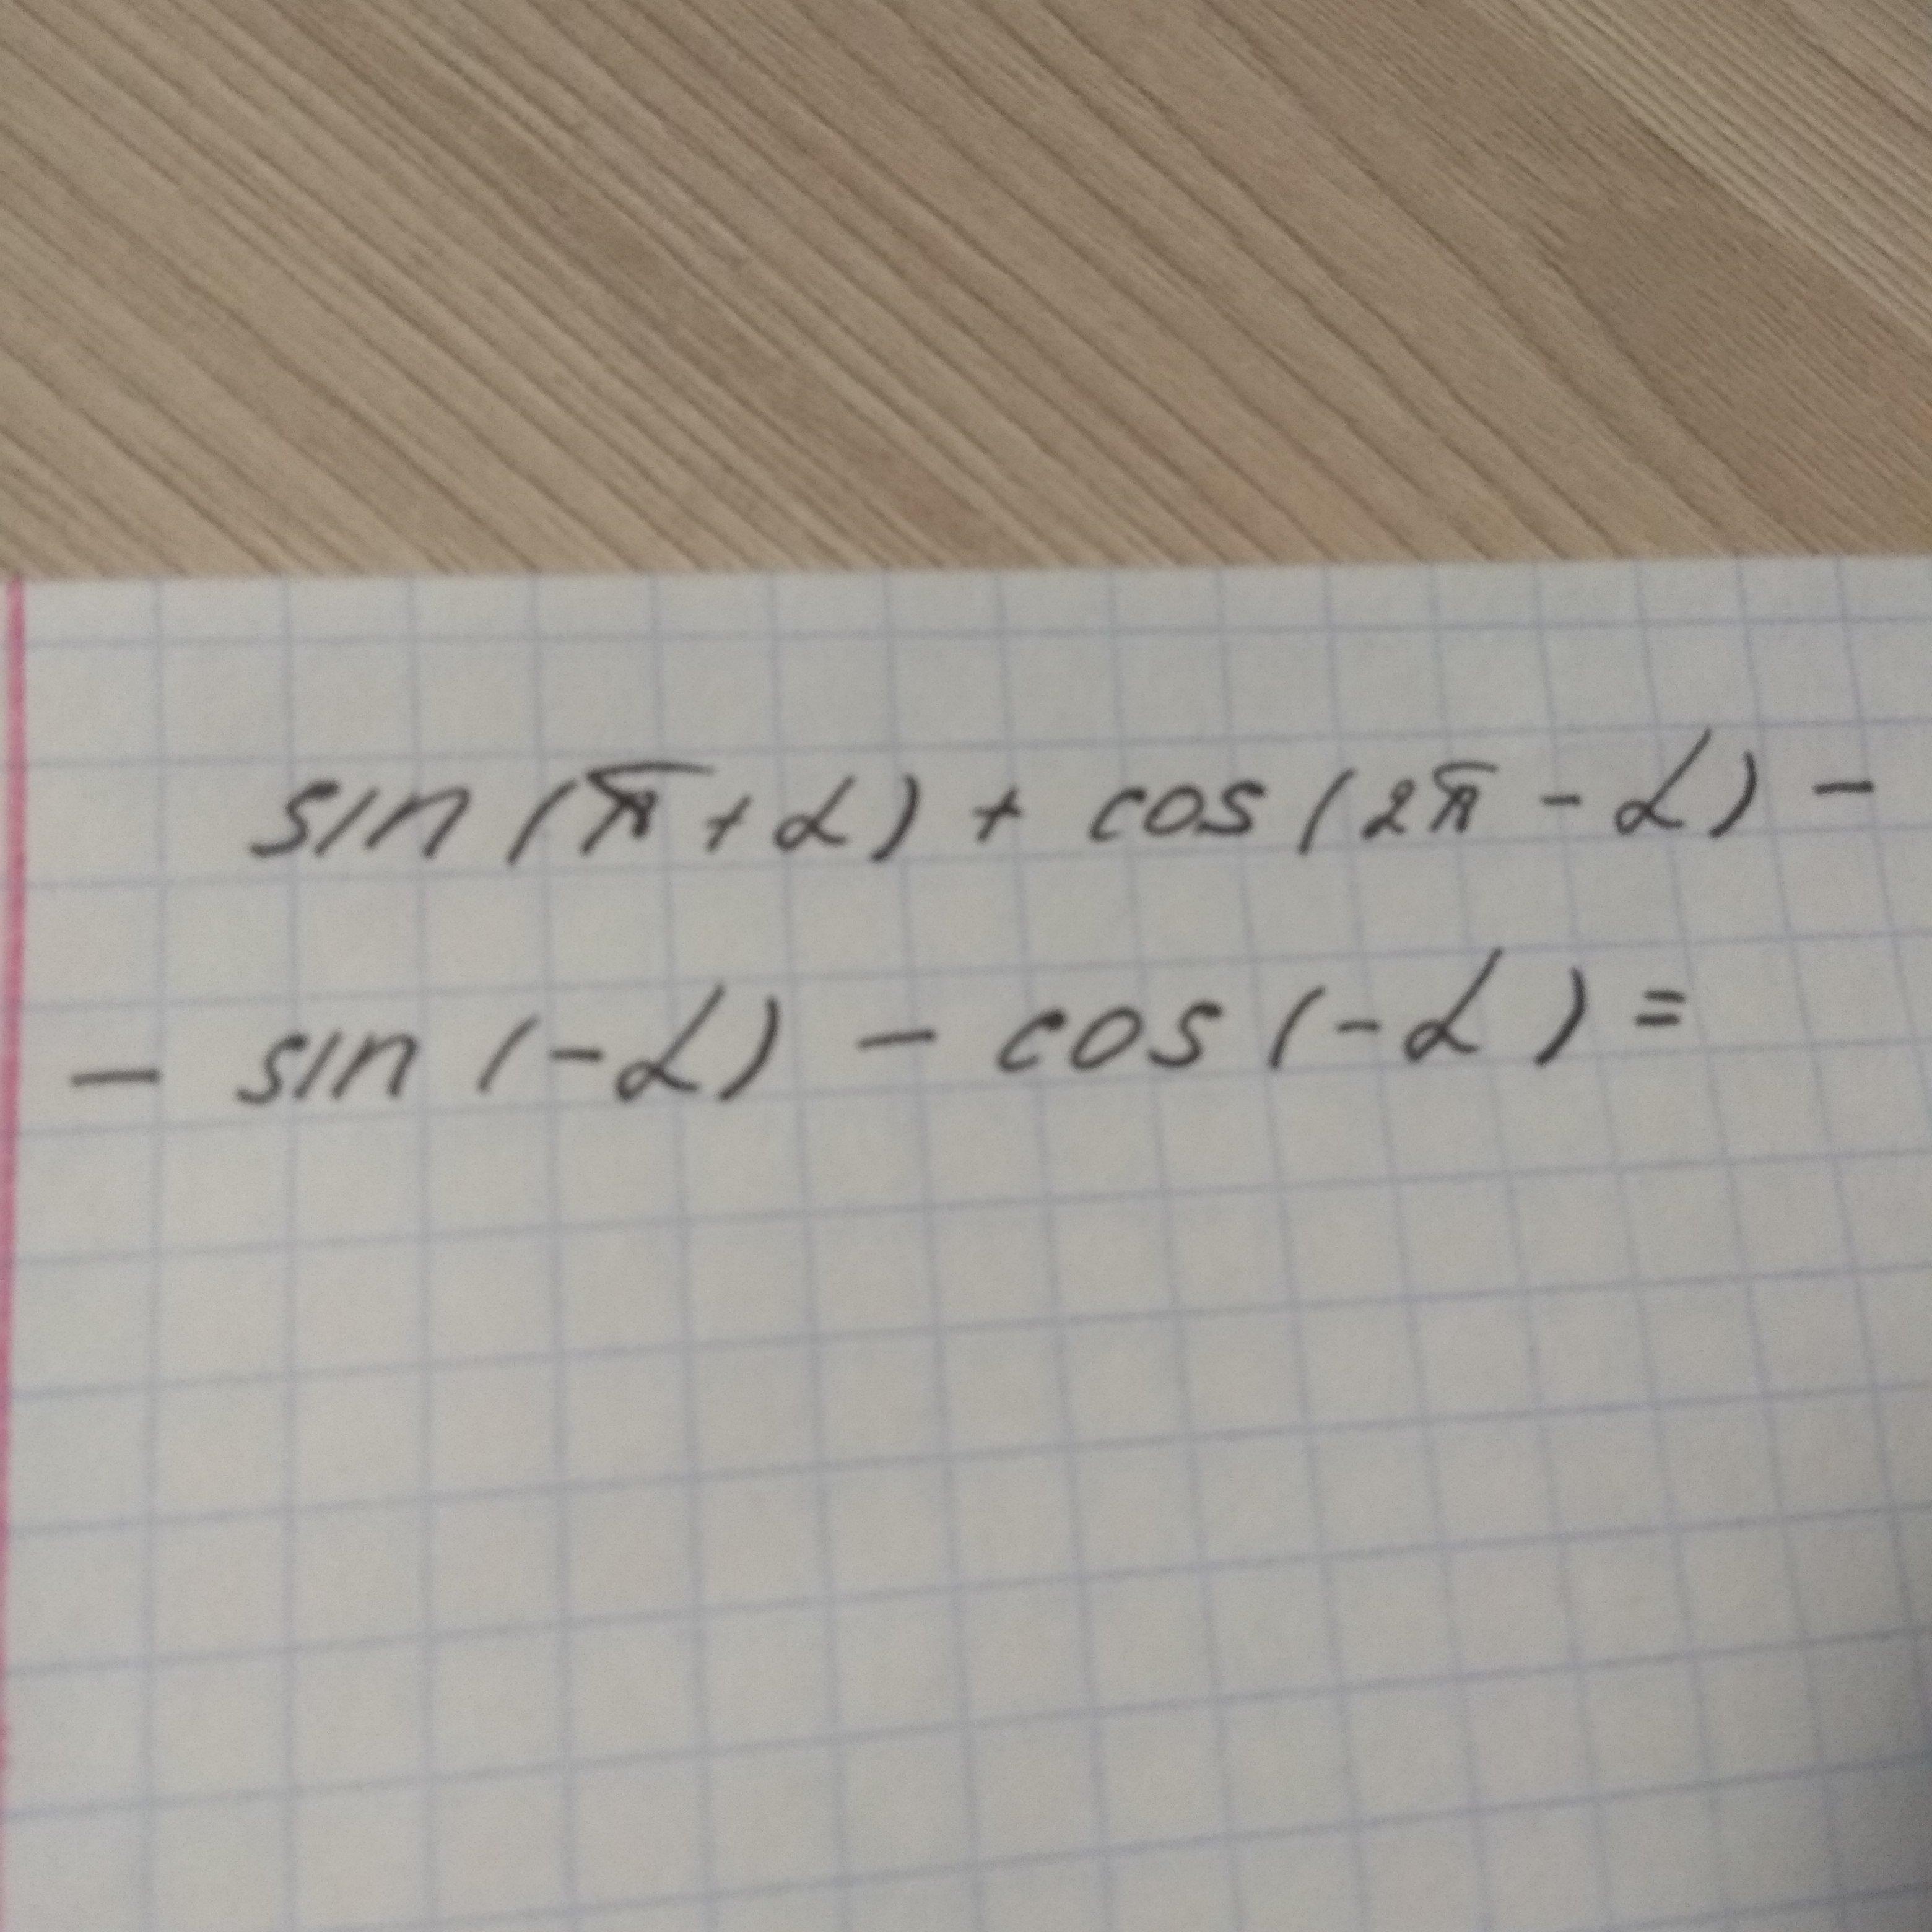 sin (π + α) + cos (2π - α) -
- sin (-α) - cos (-α) =